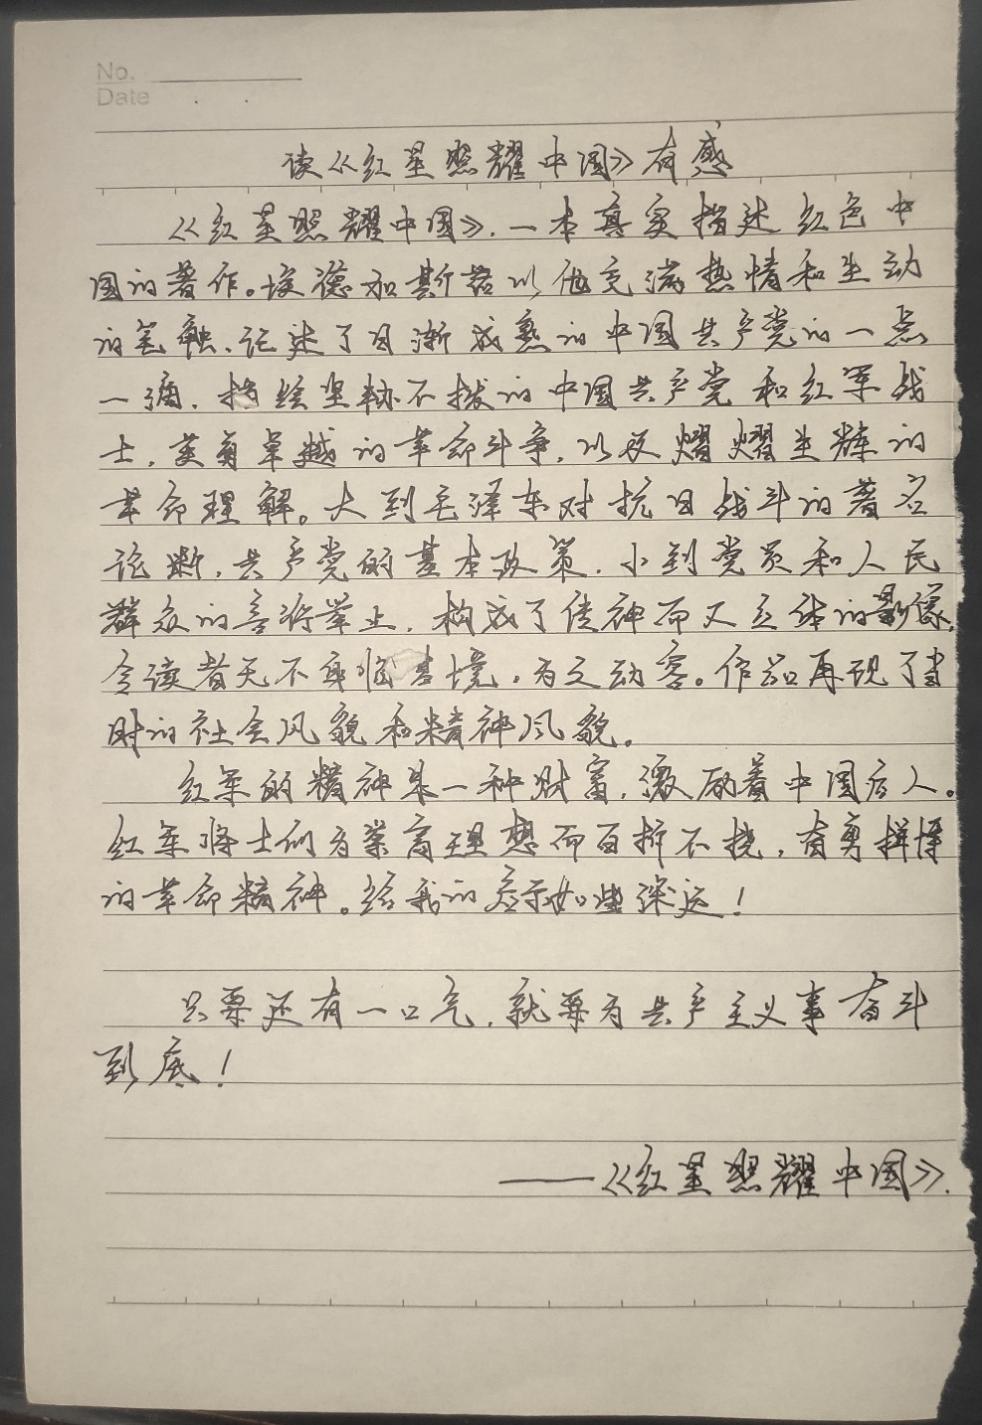 No.
Date
读《红星照耀中国》有感
《红星照耀中国》,一本真实描述红色中
国的著作。埃德加斯诺以他充满热情和生动
的笔触,论述了日渐成熟的中国共产党的一点
一滴,描绘坚韧不拔的中国共产党和红军战
士,英勇卓越的革命斗争,以及熠熠生辉的
革命理解。大到毛泽东对抗日战斗的著名
论断,共产党的基本政策,小到党员和人民
群众的言行举止,构成了传神而又立体的影像,
令读者无不身临其境,为之动容。作品再现了当
时的社会风貌和精神风貌。
红军的精神是一种财富,激励着中国后人。
红军将士们为崇高理想而百折不挠,奋勇拼搏
的革命精神。给我的启示如些深远!
只要还有一口气,就要为共产主义事奋斗
到底!
——《红星照耀中国》.